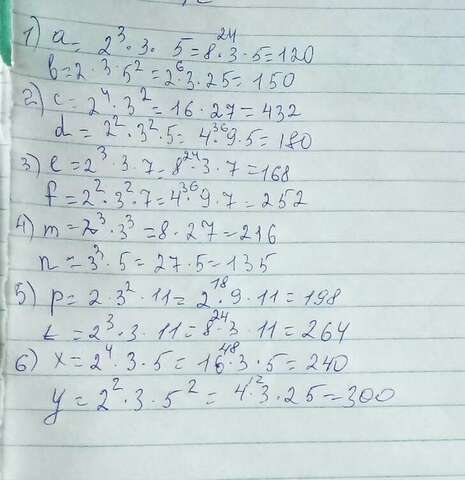 1) a = 2³ · 3 · 5 = 8 ·²⁴ 3 · 5 = 120
b = 2 · 3 · 5² = 2 ·⁶ 3 · 25 = 150
2) c = 2⁴ · 3² = 16 · 27 = 432
d = 2² · 3² · 5 = 4 ·³⁶ 9 · 5 = 180
3) e = 2³ · 3 · 7 = 8 ·²⁴ 3 · 7 = 168
f = 2² · 3² · 7 = 4 ·³⁶ 9 · 7 = 252
4) m = 2³ · 3³ = 8 · 27 = 216
n = 3³ · 5 = 27 · 5 = 135
5) p = 2 · 3² · 11 = 2 ·¹⁸ 9 · 11 = 198
t = 2³ · 3 · 11 = 8 ·²⁴ 3 · 11 = 264
6) x = 2⁴ · 3 · 5 = 16 ·⁴⁸ 3 · 5 = 240
y = 2² · 3 · 5² = 4 ·¹² 3 · 25 = 300